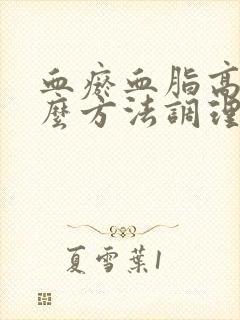 血瘀血脂高
麼方法調理
夏雪葉1